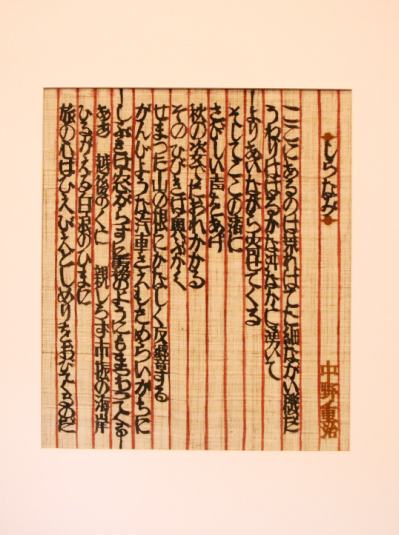 しらなみ
中野重治
ここにあるのは荒れはてた細ながい磯だ
うねりははるかな沖なかに湧いて
よりあいながら寄せてくる
そしてここの渚に
さびしい声をあげ
秋の姿でたおれかかる
そのひびきは奥ぶかく
せまった山の根にかなしく反響する
がんじょうな汽車さえもためらいがちに
しぶきは窓がらすに霧のようにもまつわってくる
ああ 越後のくに 親しらず市振の海岸
ひるがえる白浪のひまに
旅の心はひえびえとしめりをおびてくるのだ